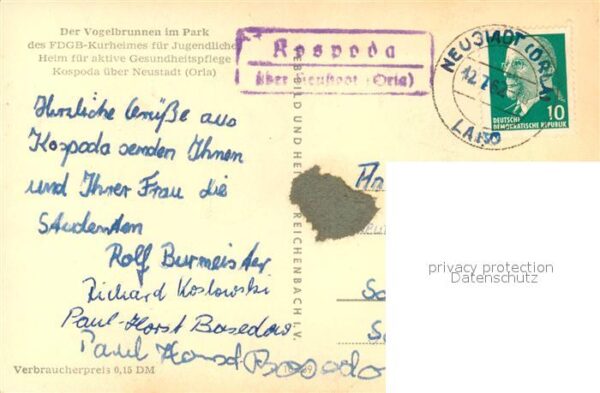 Der Vogelbrunnen im Park
des FDGB-Kurheimes für Jugendliche
Heim für aktive Gesundheitspflege
Kospoda über Neustadt (Orla)
Kospoda
über Neustadt (Orla)
NEUSTADT (ORLA)
12.7.62
10
DEUTSCHE
DEMOKRATISCHE REPUBLIK
BILD UND HEI REICHENBACH I. V.
Herzliche Grüße aus
Kospoda senden Ihnen
und Ihrer Frau die
Studenten
Rolf Burmeister
Richard Koslowski
Paul-Horst Basedow
Paul Horst Basedo
An
privacy protection
Datenschutz
Verbraucherpreis 0,15 DM